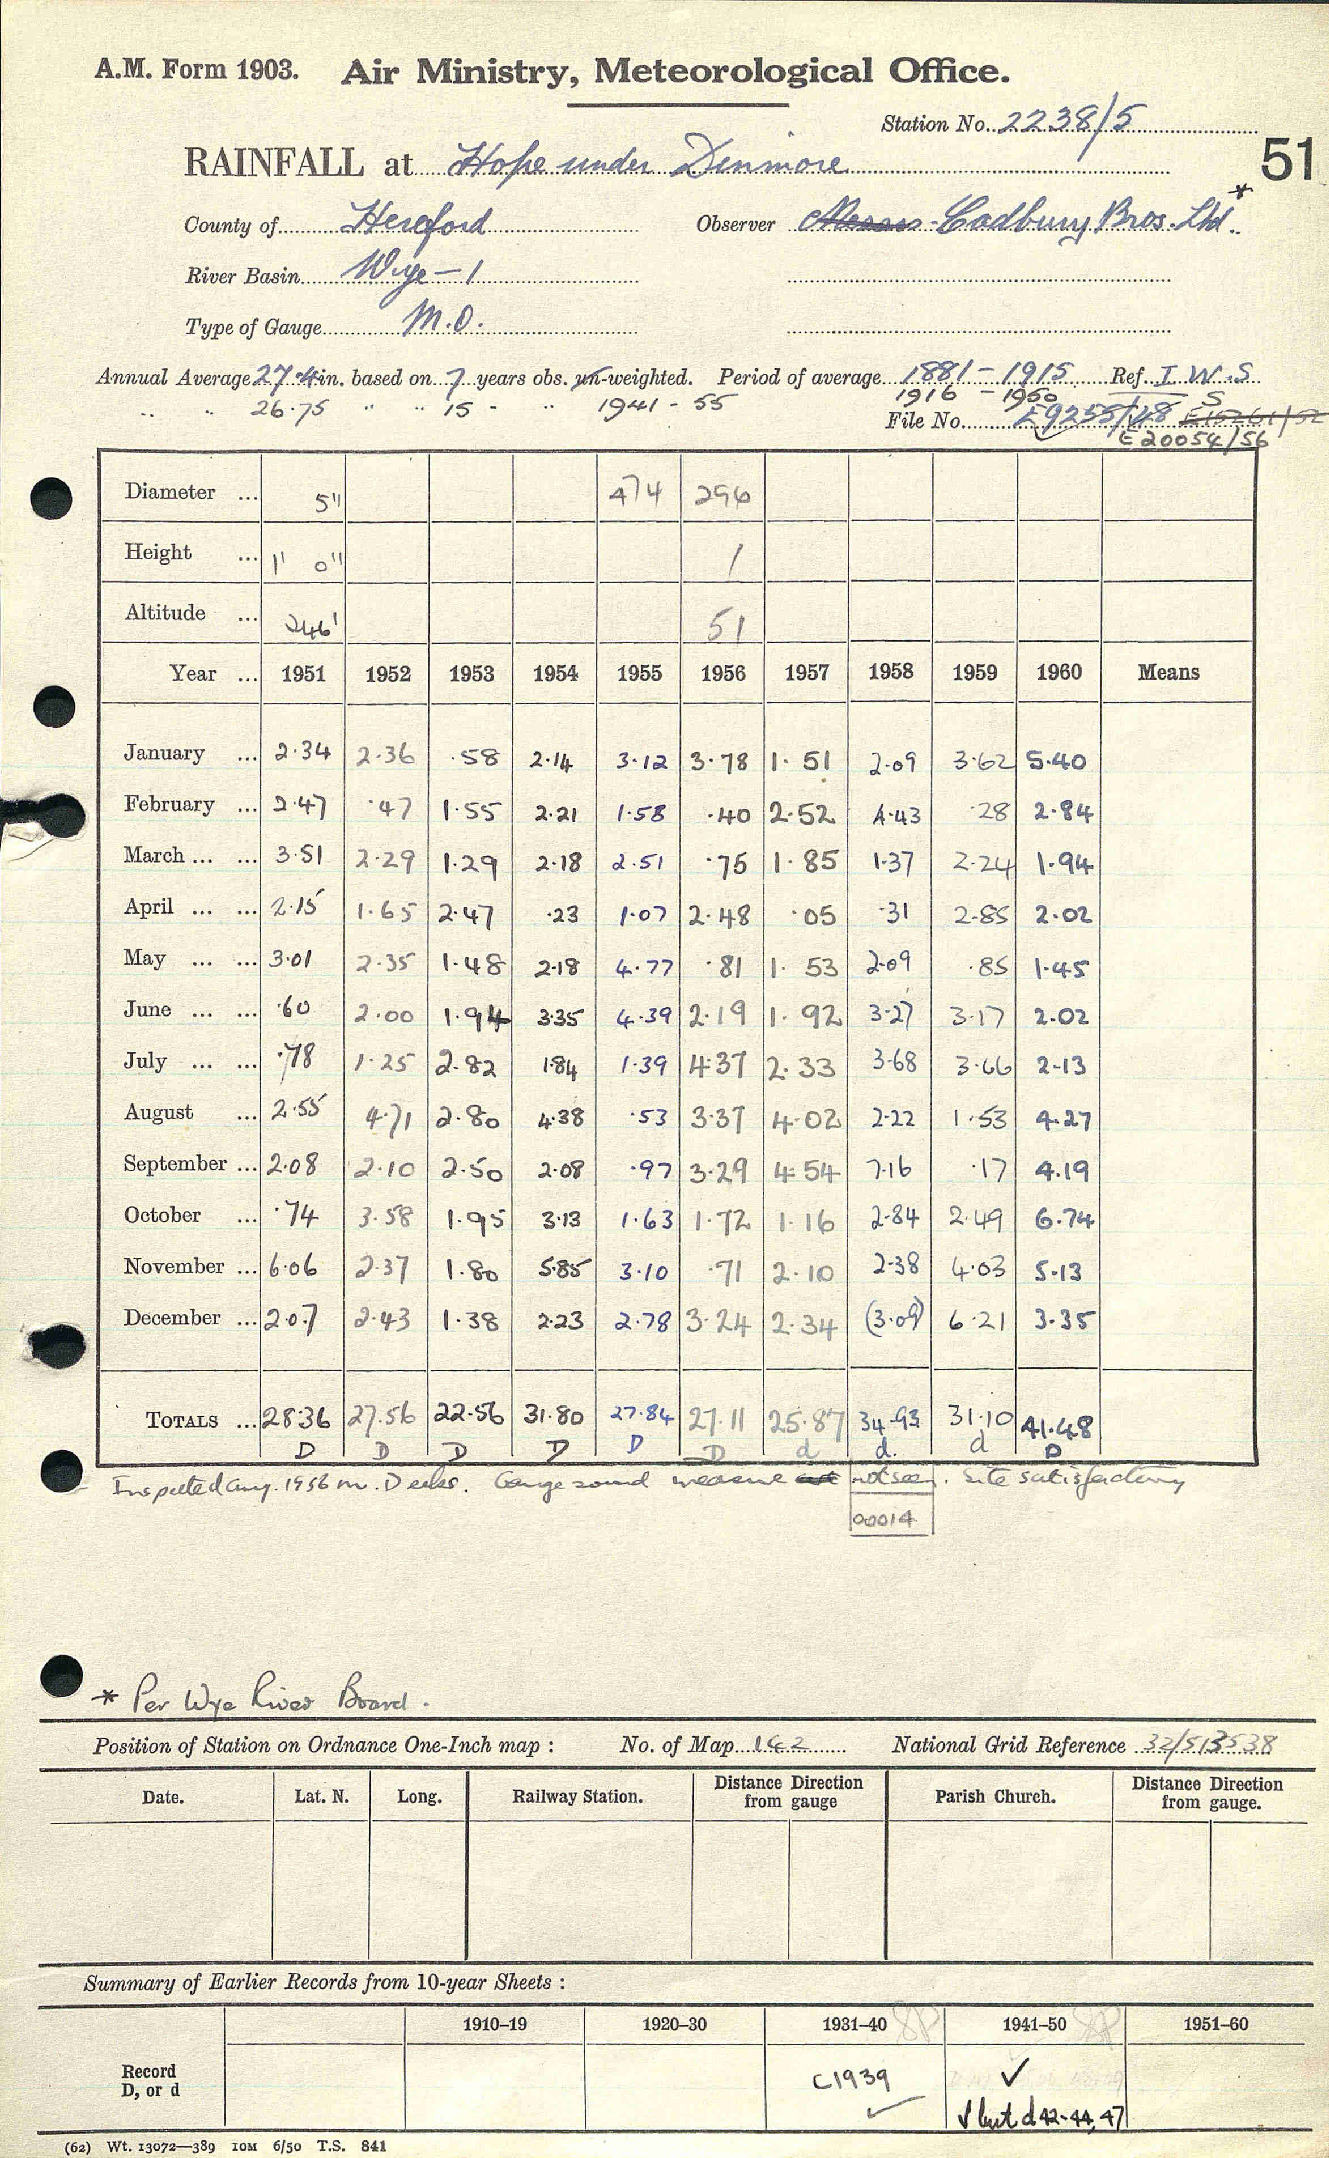 A.M. Form 1903. Air Ministry, Meteorological Office.
Station No. 2238/5
RAINFALL at Hope under Dinmore
51
County of Hereford Observer Messrs. Cadbury Bros. Ltd. *
River Basin Wye - 1
Type of Gauge M.O.
Annual Average 27.4 in. based on 7 years obs. un-weighted. Period of average 1881 - 1915 Ref. I W.S
.. " 26.75 " " 15 - " 1941 - 55 1916 - 1950 S
File No. E9255/48 E15261/52
E20054/56
Diameter ... 5" 474 296
Height ... 1' 0" 1
Altitude ... 246' 51
Year ... 1951 1952 1953 1954 1955 1956 1957 1958 1959 1960 Means
January ... 2.34 2.36 .58 2.14 3.12 3.78 1.51 2.09 3.62 5.40
February ... 2.47 .47 1.55 2.21 1.58 .40 2.52 4.43 .28 2.84
March ... ... 3.51 2.29 1.29 2.18 2.51 .75 1.85 1.37 2.24 1.94
April ... ... 2.15 1.65 2.47 .23 1.07 2.48 .05 .31 2.85 2.02
May ... ... 3.01 2.35 1.48 2.18 4.77 .81 1.53 2.09 .85 1.45
June ... ... .60 2.00 1.94 3.35 4.39 2.19 1.92 3.27 3.17 2.02
July ... ... .78 1.25 2.82 1.84 1.39 4.37 2.33 3.68 3.66 2.13
August ... 2.55 4.71 2.80 4.38 .53 3.37 4.02 2.22 1.53 4.27
September ... 2.08 2.10 2.50 2.08 .97 3.29 4.54 7.16 .17 4.19
October ... .74 3.58 1.95 3.13 1.63 1.72 1.16 2.84 2.49 6.74
November ... 6.06 2.37 1.80 5.85 3.10 .71 2.10 2.38 4.03 5.13
December ... 2.07 2.43 1.38 2.23 2.78 3.24 2.34 (3.09) 6.21 3.35
TOTALS ... 28.36 27.56 22.56 31.80 27.84 27.11 25.87 34.93 31.10 41.48
D D D D D D d d. d D
Inspected Aug. 1956 m. Gauge sound measure not seen. Site satisfactory
00014
* Per Wye River Board.
Position of Station on Ordnance One-Inch map : No. of Map 142 National Grid Reference 32/513538
Date. Lat. N. Long. Railway Station. Distance Direction from gauge Parish Church. Distance Direction from gauge.
Summary of Earlier Records from 10-year Sheets :
1910–19 1920–30 1931–40 1941–50 1951–60
Record D, or d C1939 ✓ ✓
✓ but d 42-44, 47
(62) Wt. 13072—389 10M 6/50 T.S. 841